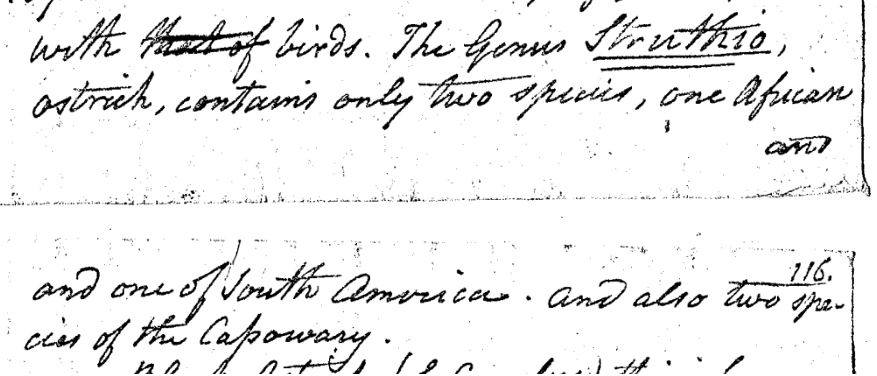 with that of birds. The Genus Struthio,
ostrich, contains only two species, one African
and
116.
and one of South America. and also two spe-
cies of the Cassowary.